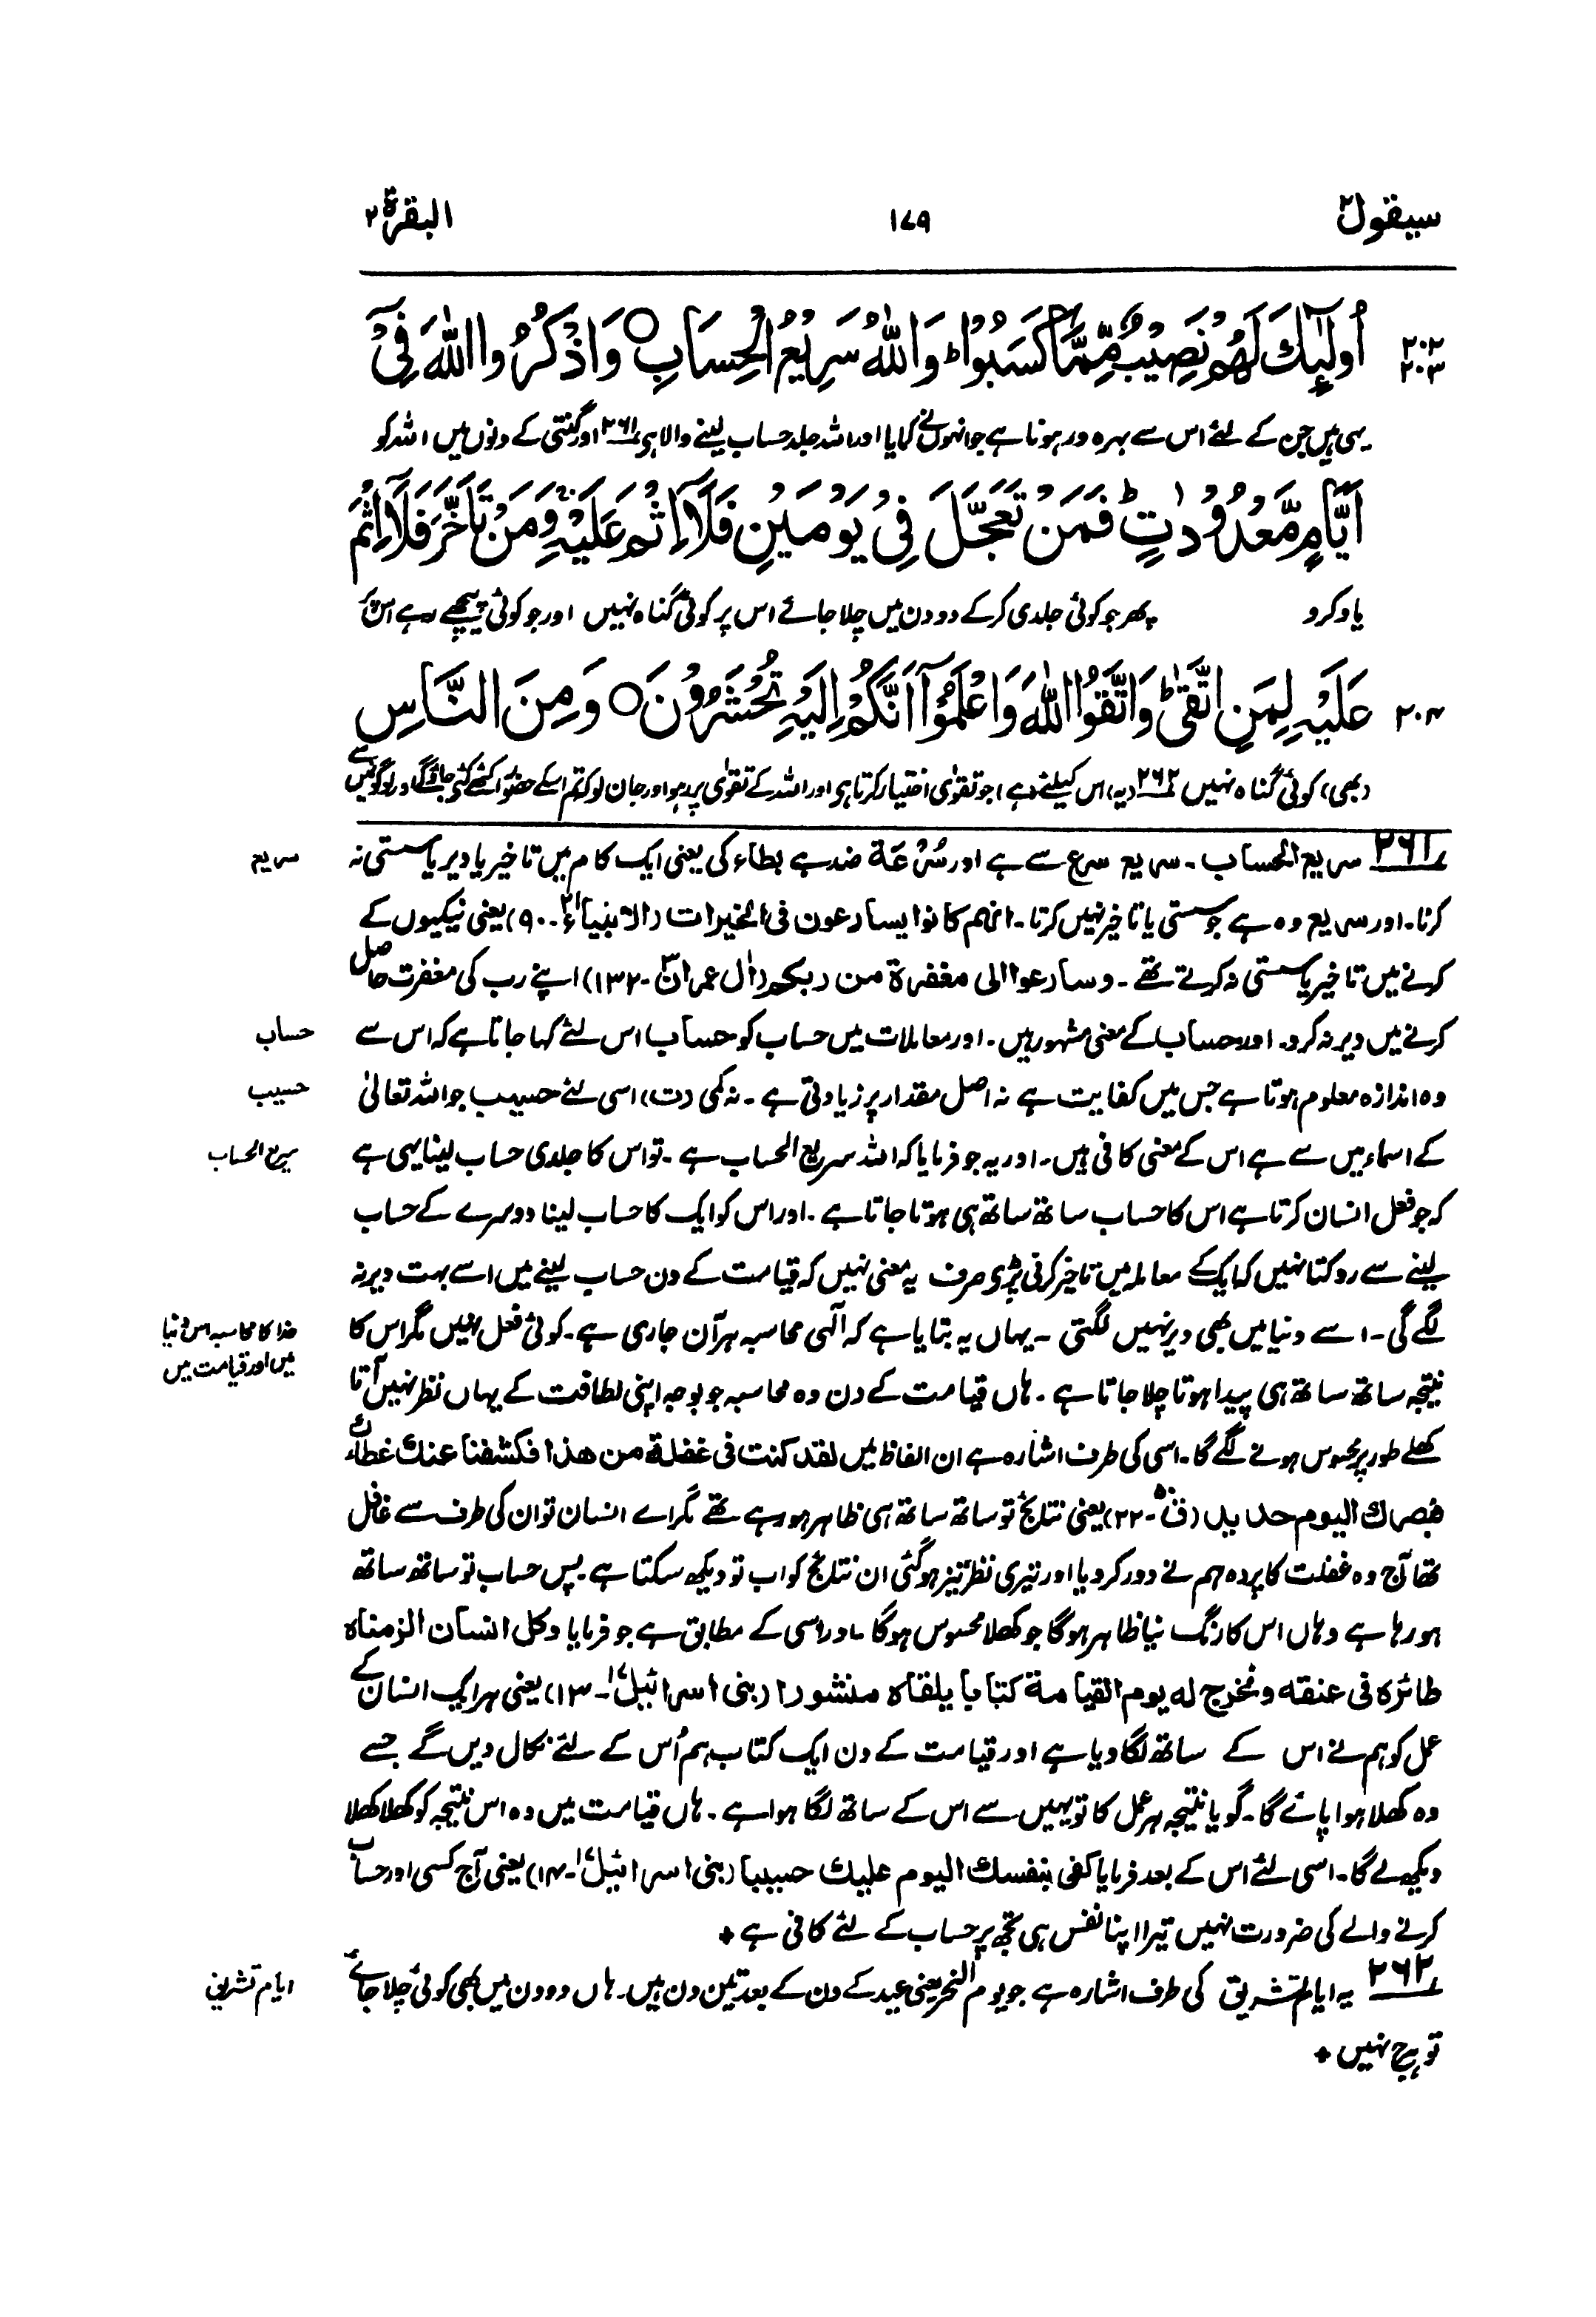 سیقول ۲
۱۷۹
البقرة ۲
۲۰۲
۲۰۳
اُولٰٓئِكَ لَهُمْ نَصِیْبٌ مِّمَّا كَسَبُوْا ؕ وَاللّٰهُ سَرِیْعُ الْحِسَابِ ○ وَاذْكُرُوا اللّٰهَ فِیْٓ
یہی ہیں جن کے لئے اس سے بہرہ ور ہونا ہے جو انہوں نے کمایا اور اللہ جلد حساب لینے والا ہی ۲۶۱ اور گنتی کے دنوں میں اللہ کو
اَیَّامٍ مَّعْدُوْدٰتٍ ؕ فَمَنْ تَعَجَّلَ فِیْ یَوْمَیْنِ فَلَاۤ اِثْمَ عَلَیْهِ ۚ وَمَنْ تَاَخَّرَ فَلَاۤ اِثْمَ
یاد کرو پھر جو کوئی جلدی کرکے دو دن میں چلا جائے اس پر کوئی گناہ نہیں اور جو کوئی پیچھے رہے اس پر
۲۰۴
عَلَیْهِ لِمَنِ اتَّقٰی ؕ وَاتَّقُوا اللّٰهَ وَاعْلَمُوْۤا اَنَّكُمْ اِلَیْهِ تُحْشَرُوْنَ ○ وَمِنَ النَّاسِ
(بھی) کوئی گناہ نہیں ۲۶۲ (یہ) اس کیلئے (ہے) جو تقوٰی اختیار کرتا ہی اور اللہ کے تقوٰی پر رہو اور جان لو کہ تم اسکے حضور اکٹھے کئے جاؤگے اور لوگوں میں سے
۲۶۱ سریع الحساب ۔ سریع سرع سے ہے اور سُرْعَة ضد ہے بطاء کی یعنی ایک کام میں تاخیر یا دیر یا سستی نہ
سریع
کرنا ۔ اور سریع وہ ہے جو سستی یا تاخیر نہیں کرتا ۔ انہم کانوا یسارعون فی الخیرات (الانبیاء ۲۱ ۔ ۹۰) یعنی نیکیوں کے
کرنے میں تاخیر یا سستی نہ کرتے تھے ۔ وسارعوا الی مغفرة من ربکم (اٰل عمران ۳ ۔ ۱۳۲) اپنے رب کی مغفرت حاصل
کرنے میں دیر نہ کرو ۔ اور حساب کے معنی مشہور ہیں ۔ اور معاملات میں حساب کو حساب اس لئے کہا جاتا ہے کہ اس سے
حساب
وہ اندازہ معلوم ہوتا ہے جس میں کفایت ہے نہ اصل مقدار پر زیادتی ہے ۔ نہ کمی (ت) اسی لئے حسیب جو اللہ تعالیٰ
حسیب
کے اسماء میں سے ہے اس کے معنی کافی ہیں ۔ اور یہ جو فرمایا کہ اللہ سریع الحساب ہے ۔ تو اس کا جلدی حساب لینا یہی ہے
سریع الحساب
کہ جو فعل انسان کرتا ہے اس کا حساب ساتھ ساتھ ہی ہوتا جاتا ہے ۔ اور اس کو ایک کا حساب لینا دوسرے کے حساب
لینے سے روکتا نہیں کہ ایک کے معاملہ میں تاخیر کرنی پڑے صرف یہ معنی نہیں کہ قیامت کے دن حساب لینے میں اسے بہت دیر نہ
لگے گی ۔ اسے دنیا میں بھی دیر نہیں لگتی ۔ یہاں یہ بتایا ہے کہ الٰہی محاسبہ ہر آن جاری ہے ۔ کوئی فعل نہیں مگر اس کا
خدا کا محاسبہ اس دنیا
میں اور قیامت میں
نتیجہ ساتھ ساتھ ہی پیدا ہوتا چلا جاتا ہے ۔ ہاں قیامت کے دن وہ محاسبہ جو بوجہ اپنی لطافت کے یہاں نظر نہیں آتا
کھلے طور پر محسوس ہونے لگے گا ۔ اسی کی طرف اشارہ ہے ان الفاظ میں لقد کنت فی غفلة من هذا فکشفنا عنك غطاءك
فبصرك الیوم حدید (قٓ ۵۰ ۔ ۲۲) یعنی نتائج تو ساتھ ساتھ ہی ظاہر ہو رہے تھے مگر اے انسان تو ان کی طرف سے غافل
تھا آج وہ غفلت کا پردہ ہم نے دور کر دیا اور تیری نظر تیز ہو گئی ان نتائج کو اب تو دیکھ سکتا ہے ۔ پس حساب تو ساتھ ساتھ
ہو رہا ہے وہاں اس کا رنگ نیا ظاہر ہوگا جو کھلا محسوس ہوگا ۔ اور اسی کے مطابق ہے جو فرمایا وکل انسان الزمناه
طائره فی عنقه ونخرج له یوم القیامة کتابا یلقاه منشورا (بنی اسرائیل ۱۷ ۔ ۱۳) یعنی ہر ایک انسان کے
عمل کو ہم نے اس کے ساتھ لگا دیا ہے اور قیامت کے دن ایک کتاب ہم اُس کے لئے نکال دیں گے جسے
وہ کھلا ہوا پائے گا ۔ گویا نتیجہ ہر عمل کا تو یہیں سے اس کے ساتھ لگا ہوا ہے ۔ ہاں قیامت میں وہ اس نتیجہ کو کھلا کھلا
دیکھ لے گا ۔ اسی لئے اس کے بعد فرمایا کفی بنفسك الیوم علیك حسیبا (بنی اسرائیل ۱۷ ۔ ۱۴) یعنی آج کسی اور حساب
کرنے والے کی ضرورت نہیں تیرا اپنا نفس ہی تجھ پر حساب کے لئے کافی ہے +
۲۶۲ یہ ایام تشریق کی طرف اشارہ ہے جو یوم النحر یعنی عید کے دن کے بعد تین دن ہیں ۔ ہاں دو دن میں بھی کوئی چلا جائے
ایام تشریق
تو ہرج نہیں +